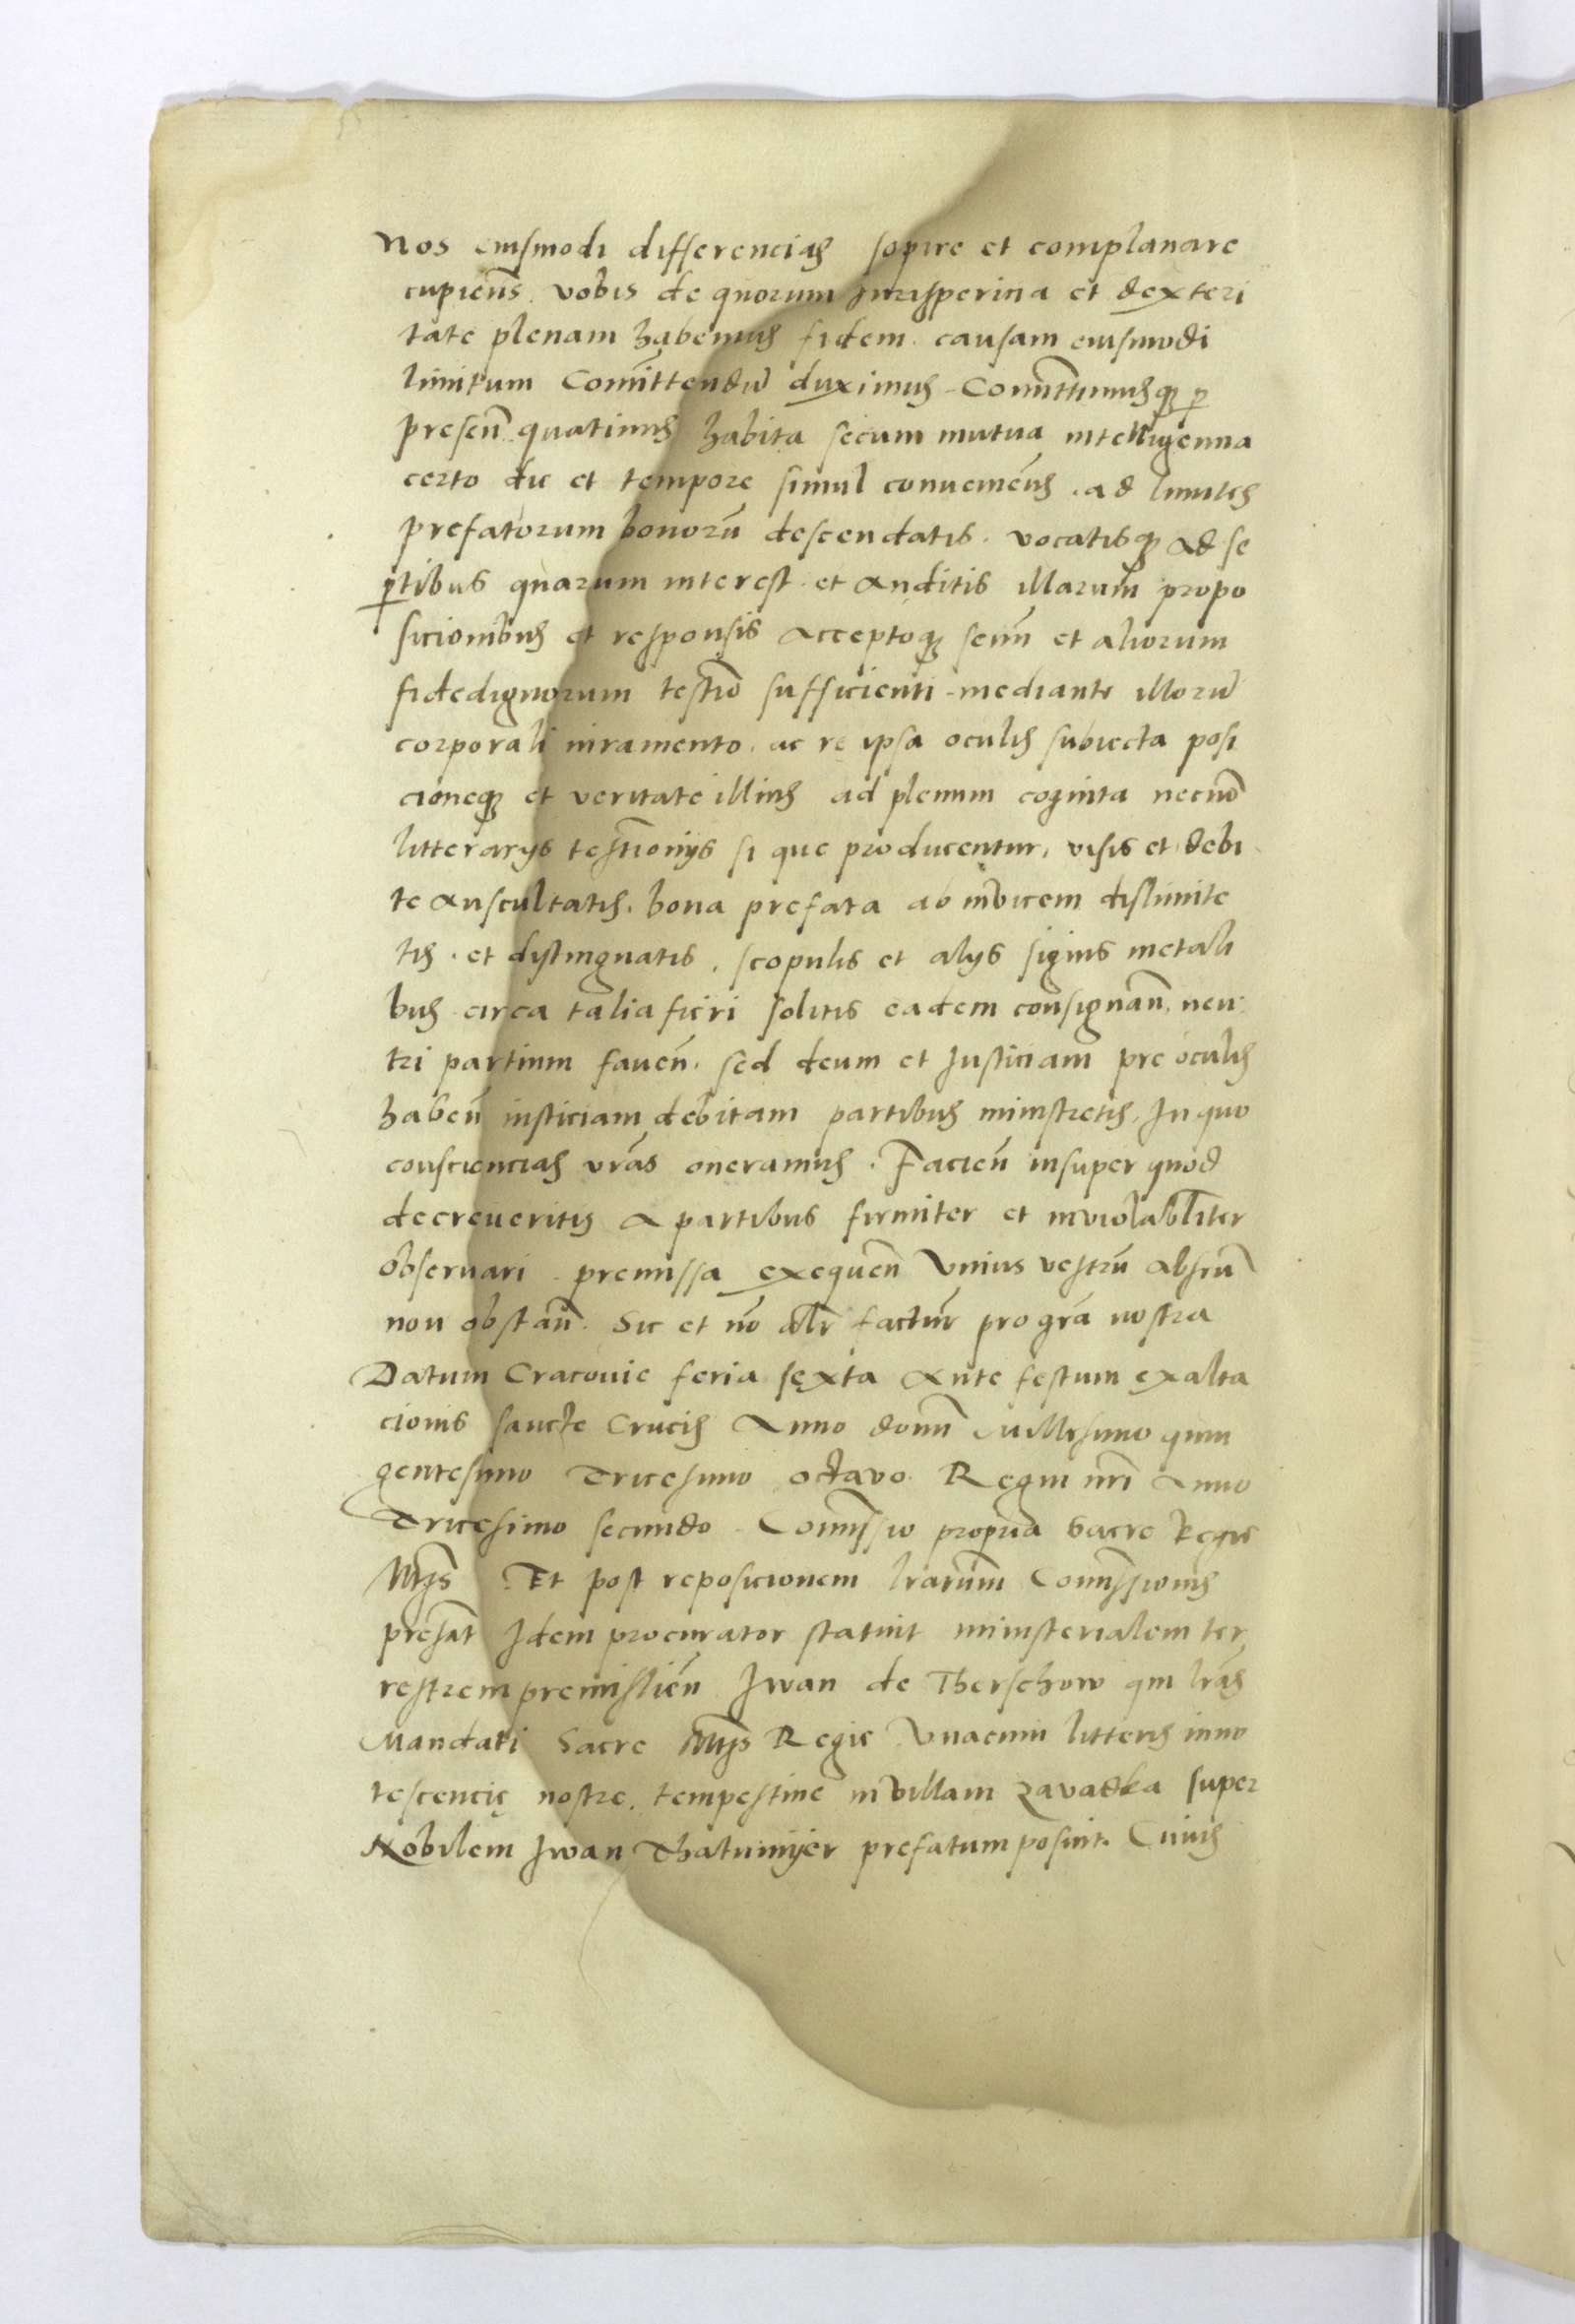 Nos eiusmodi differencias sopire et complanare
cupiens. vobis de quorum Jurispericia et dexteri
tate plenam habemus fidem. causam eiusmodi
limitum Comittendū duximus. Comittimusq3 p
presen̄. quatinus habita secum mutua intelligencia
certo die et tempore simul conuenien̄s. ad limites
prefatorum bonorū descendatis. vocatisq3 ad se
ptibus quarum interest. et auditis illarum propo
sicionibus et responsis acceptoq3 senm̄ et aliorum
fidedignorum testio sufficienti. mediante illorū
corporali iuramento. ac re ipsa oculis subiecta posi
cioneq3 et veritate illius ad plenum cognita necnō
litterarijs testionijs si que producentur, visis et debi
te auscultatis. bona prefata ab inuicem dislimite
tis. et distinguatis. scopulis et alijs signis metali
bus circa talia fieri solitis eadem consignan̄. neu
tri partium fauen̄. sed deum et Justiciam pre oculis
haben̄ iusticiam debitam partibus ministretis. In quo
consciencias vrās oneramus. Facien̄ insuper quod
decreueritis a partibus firmiter et inviolabliter
obseruari. premissa exequen̄ Vnius vestrū absen̄
non obstan̄. Sic et nō alr̄ facturi pro grā nostra
Datum Cracouie feria sexta Ante festum exalta
cionis sancte Crucis Anno domī Millesimo quin
gentesimo Tricesimo octavo. Regni nrī Anno
Tricesimo secundo. Comissio propria Sacre Regie
Mtīs Et post reposicionem lrarum Comissionis
presāt Idem procurator statuit ministerialem ter
restrem premislien̄ Iwan de Therschow qui lrās
Mandati Sacre Mtīs Regie Vnacum litteris inno
tescencie nostre. tempestiue in villam Zavadka super
Nobilem Iwan Thatumijer prefatum posuit. Cuius